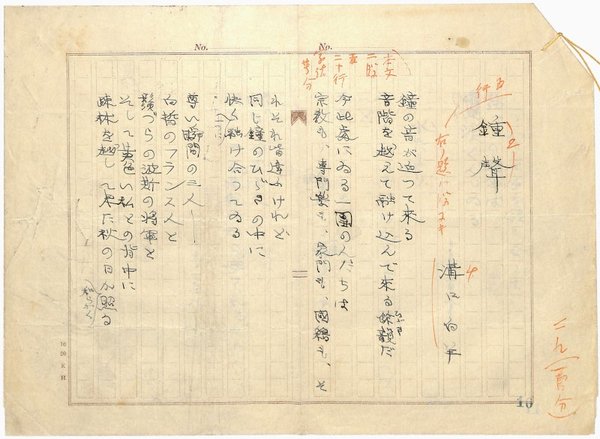 五行
鐘聲
溝口白羊
4
No.
No.
本文
二段
二十行
鐘の音が迫つて来る
音階を越えて融け込んで来る餘韻だ
今此處にゐる一團の人だちは
宗教も、専門業も、家門も、國籍も、そ
れそれ皆違ふけれど
同じ鐘のひゞきの中に
快く融け合つてゐる
尊い瞬間の三人―
白皙のフランス人と
鬚づらの波斯の将軍と
そして黄色い私との背中に
疎林を越して来た秋の日が照る
10